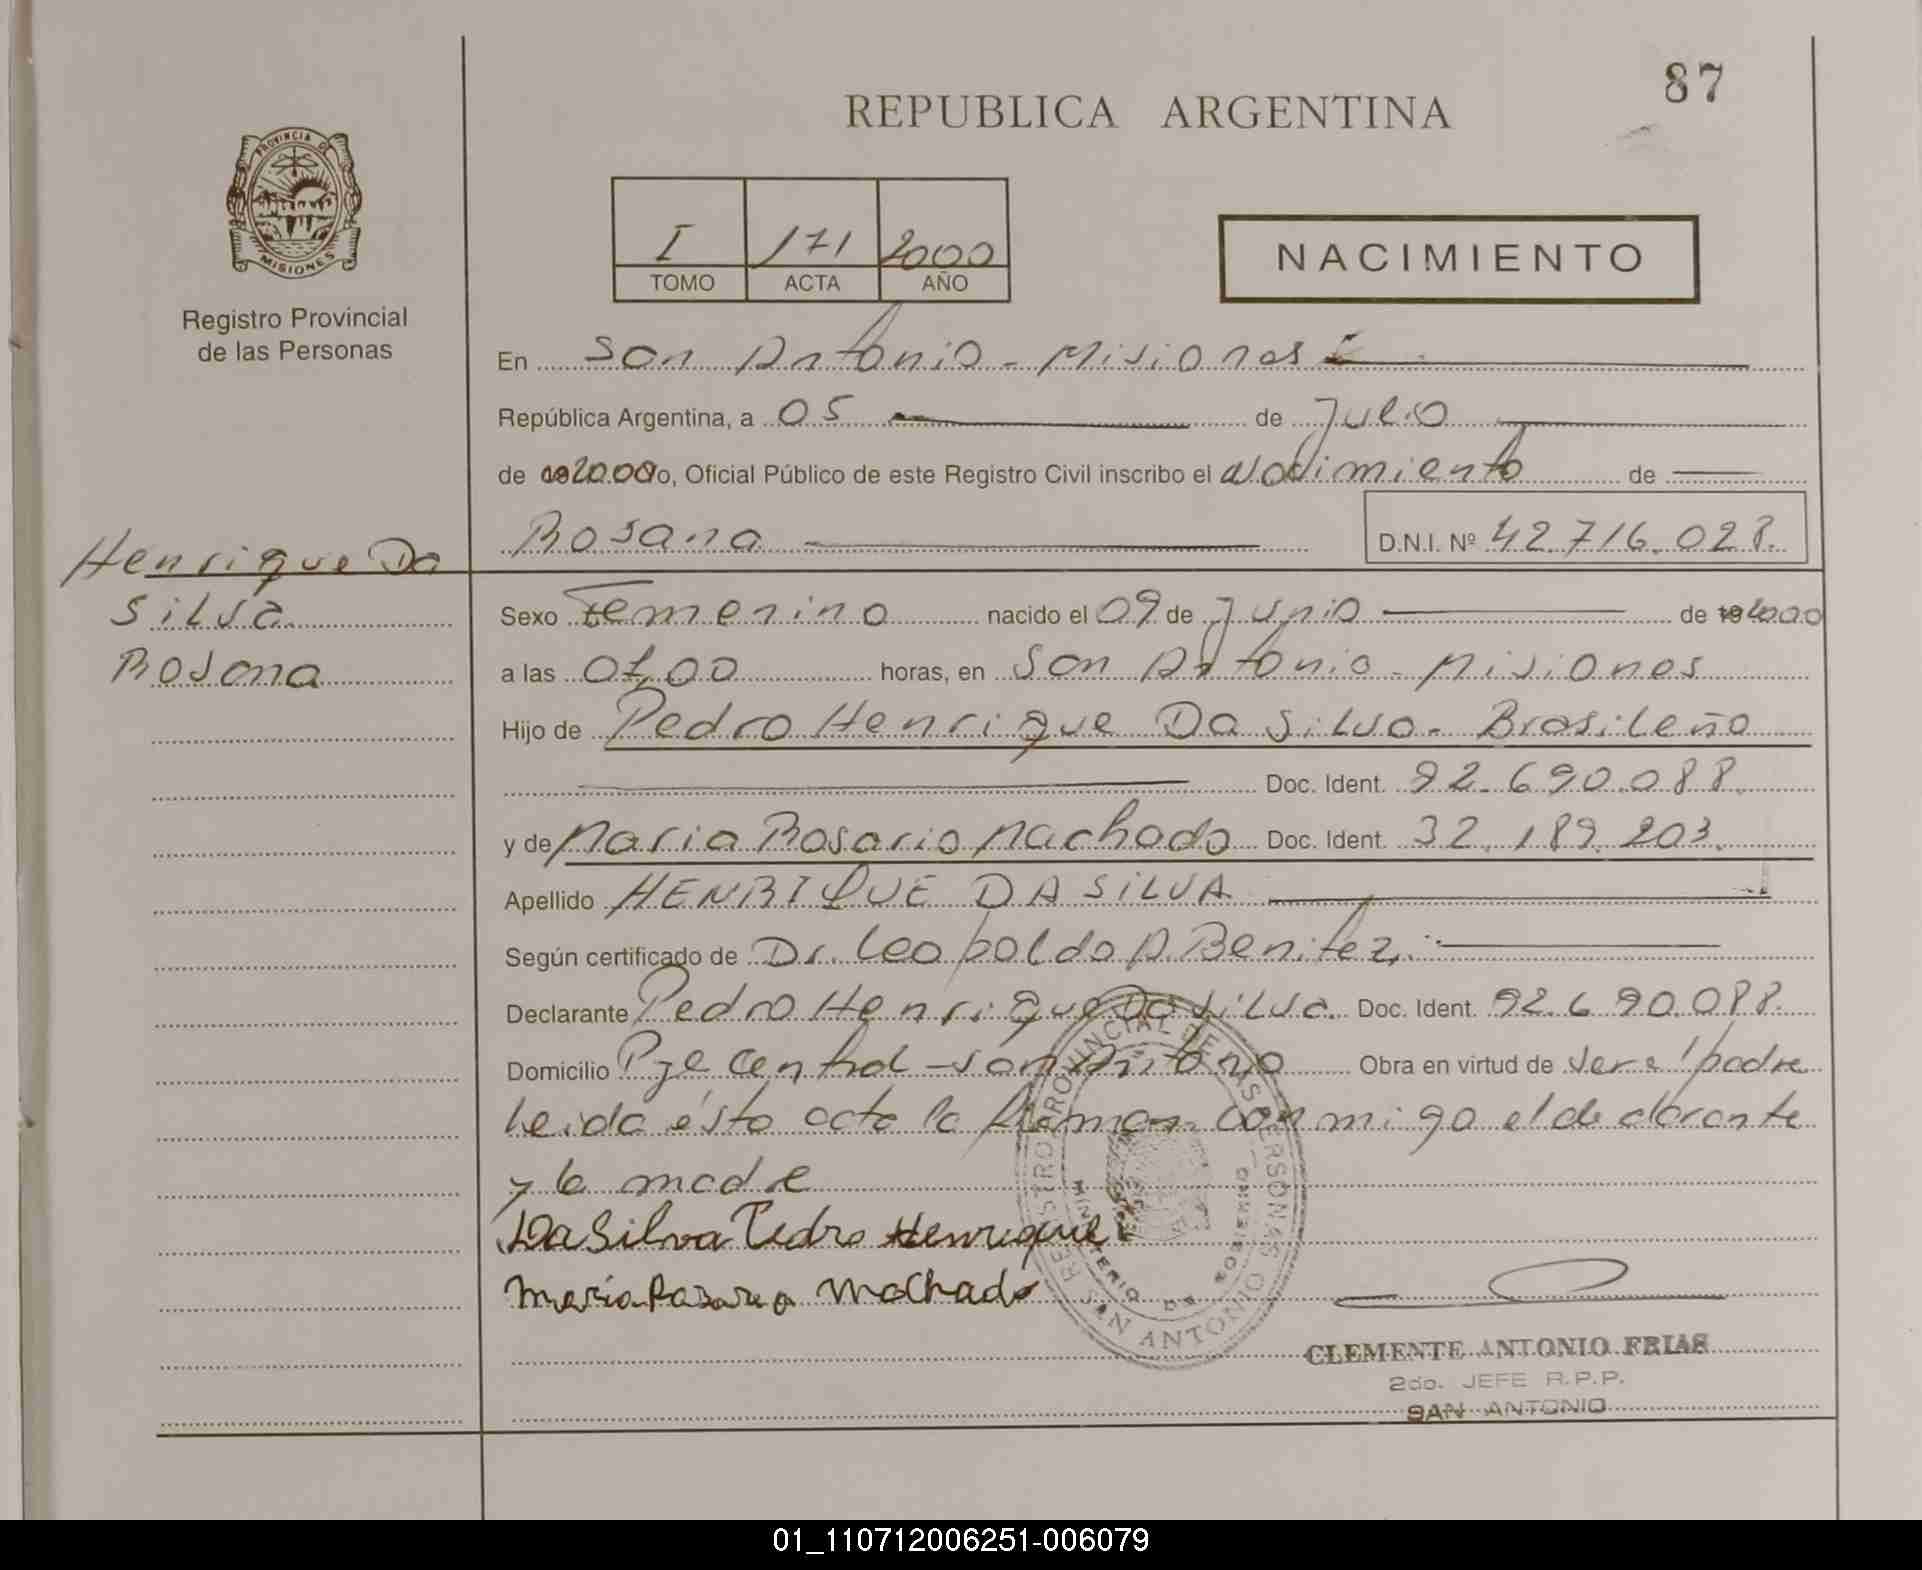 87
REPUBLICA ARGENTINA
PROVINCIA DE
MISIONES
Registro Provincial
de las Personas
I 171 2000
TOMO ACTA AÑO
NACIMIENTO
En San Antonio - Misiones
República Argentina, a 05 de Julio
de 2000 yo, Oficial Público de este Registro Civil inscribo el Nacimiento de
Rosana D.N.I. Nº 42.716.028.
Henrique Da
Silva
Rosana
Sexo Femenino nacido el 09 de Junio de 2000
a las 01,00 horas, en San Antonio - Misiones
Hijo de Pedro Henrique Da Silva - Brasileño
Doc. Ident. 92.690.088.
y de Maria Rosario Machado Doc. Ident. 32.189.203.
Apellido HENRIQUE DA SILVA
Según certificado de Dr. Leopoldo A. Benitez
Declarante Pedro Henrique Da Silva Doc. Ident. 92.690.088.
Domicilio Pje Central - San Antonio Obra en virtud de ser el padre
Leida ésta acta la firman conmigo el declarante
y la madre
Da Silva Pedro Henrique
Maria Rosario Machado
REGISTRO PROVINCIAL DE LAS PERSONAS
MINISTERIO DE GOBIERNO
SAN ANTONIO
CLEMENTE ANTONIO FRIAS
2do. JEFE R.P.P.
SAN ANTONIO
01_110712006251-006079